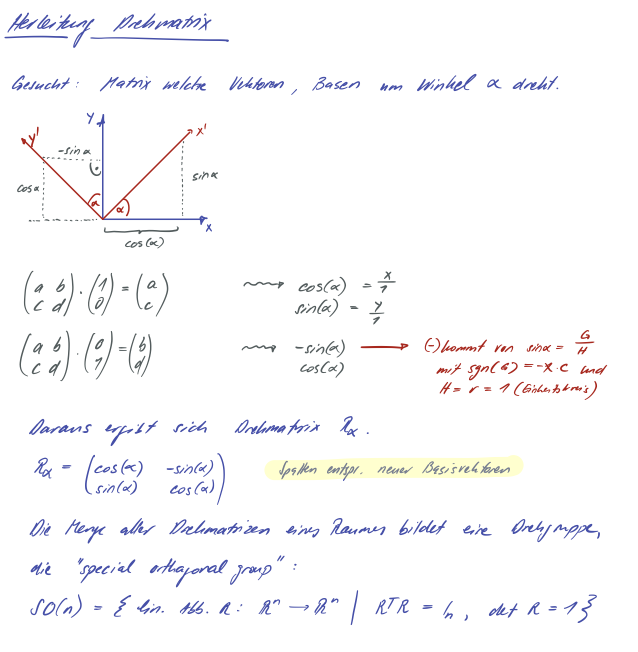 Herleitung Drehmatrix
Gesucht: Matrix welche Vektoren, Basen um Winkel α dreht.
y
y'
x'
-sinα
cosα
α
α
sinα
x
cos(α)
(a b; c d) · (1; 0) = (a; c) ⇝ cos(α) = x/1
sin(α) = y/1
(a b; c d) · (0; 1) = (b; d) ⇝ -sin(α) → (-) kommt von sinα = G/H
cos(α) mit sgn(G) = -x · c und
H = r = 1 (Einheitskreis)
Daraus ergibt sich Drehmatrix Rα.
Rα = (cos(α) -sin(α); sin(α) cos(α)) Spalten entspr. neuer Basisvektoren
Die Menge aller Drehmatrizen eines Raumes bildet eine Drehgruppe,
die "special orthogonal group":
SO(n) = { lin. Abb. R: ℝⁿ → ℝⁿ | RᵀR = Iₙ, det R = 1 }